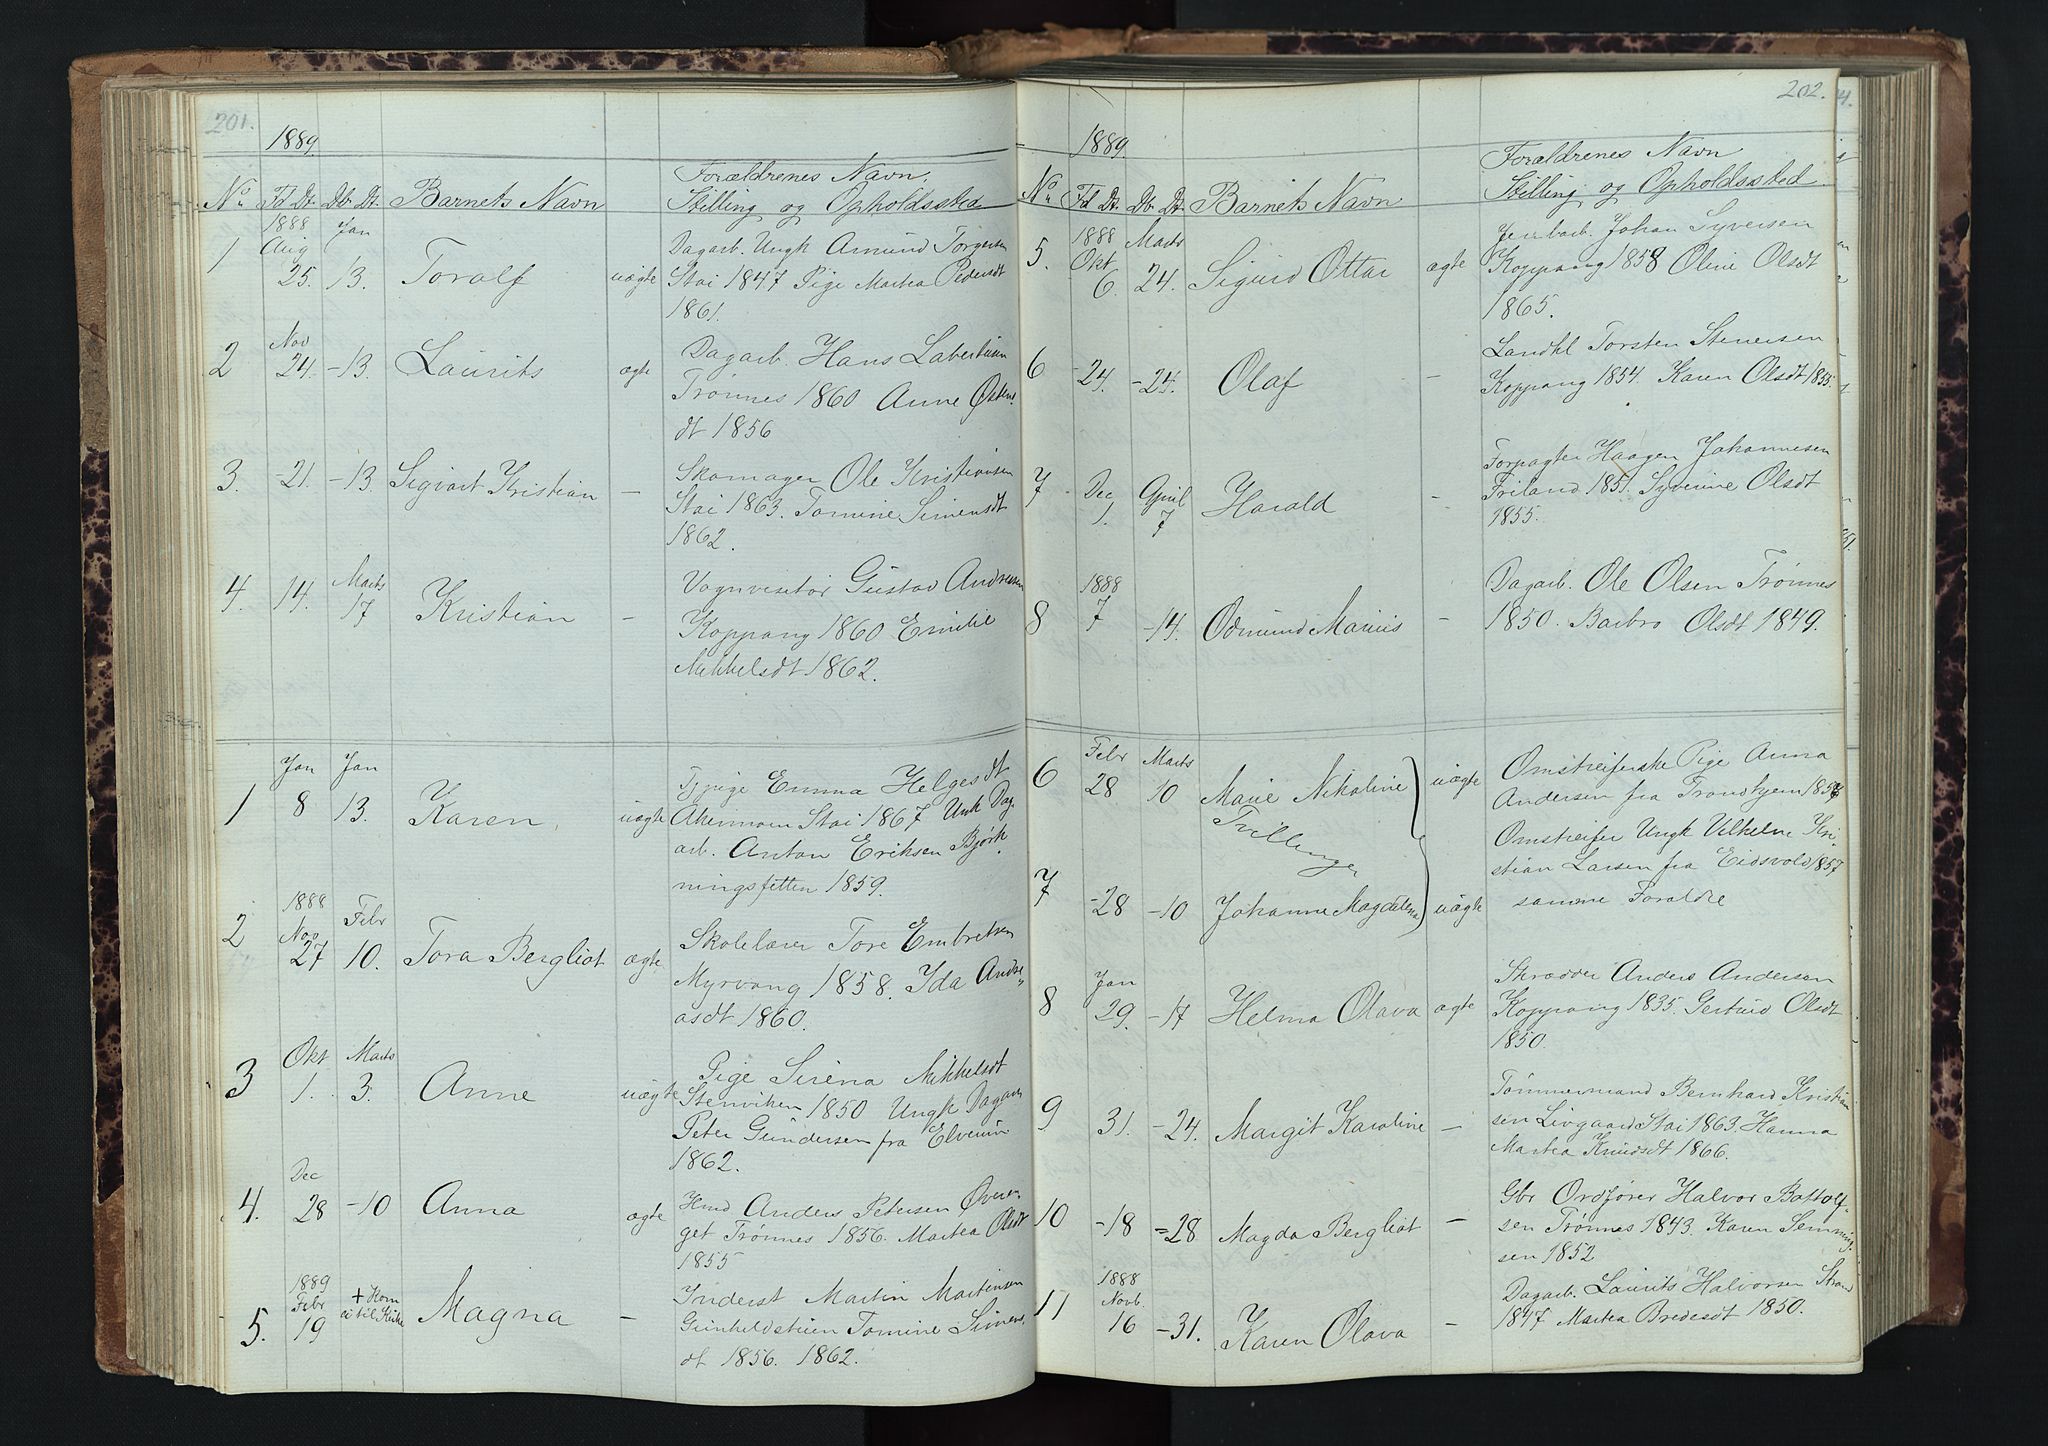 201.
1889.
No Fd Dt. Db. Dt. Barnets Navn Forældrenes Navn,
Stilling og Opholdssted
1 1888 Aug 25. Jan 13. Toralf uægte Dagarb. Ungk Amund Torgersen
Stai 1847 Pige Martea Pedersdt
1861.
2 Nov 24. -13. Laurits ægte Dagarb. Hans
Trønnes 1860 Anne Østens
dt 1856
3. -21. -13. Sigvart Kristian - Skomager Ole Kristiansen
Stai 1863. Tomine Simensdt
1862.
4. 14. Marts 17 Kristian - Vognvisitør Gustav Andresen
Koppang 1860 Emilie
Mikkelsdt 1862.
1 Jan 8 Jan 13. Karen uægte Tjpige Emma Helgesdt
Akermoen Stai 1867 Unk Dag-
arb. Anton Eriksen Bjørk-
ningsfetten 1859.
2 1888 Nov 27 Febr 10. Tora Bergliot ægte Skolelærer Tore Embretsen
Myrvang 1858. Ida Andre-
asdt 1860.
3 Okt 1. Marts 3. Anne uægte Pige Sirena Mikkelsdt
Stenviken 1850 Ungk Dagarb
Peter Gundersen fra Elverum
1862.
4. Dec 28 -10 Anna ægte Hmd Anders Petersen Øvere-
get Trønnes 1856. Martea Olsdt
1855
5. 1889 Febr 19 + Kom ei til Kirke Magna - Inderst Martin Martinsen
Gunheldstuen Tomine Simens-
dt 1856. 1862.
202.
1889.
No Fd Dt. Db. Dt. Barnets Navn Forældrenes Navn
Stilling og Opholdssted
5. 1888 Okt 6. Marts 24. Sigurd Ottar ægte Jernbarb. Johan Syversen
Koppang 1858 Oline Olsdt
1865.
6 -24. -24. Olaf - Landhl Torsten Stenersen
Koppang 1854. Karen Olsdt 1855.
7 Dec 1. April 7 Harald - Forpagter Haagen Johannesen
Friland 1851. Syverine Olsdt
1855.
8 1888 7 -14. Odmund Marius - Dagarb. Ole Olsen Trønnes
1850. Barbro Olsdt 1849.
6 Febr 28 Marts 10 Marie Nikoline uægte Omstreiferske Pige Anna
Andersen fra Trondhjem
Tvillinger Omstreifer Ungk Vilhelm Kri-
stian Larsen fra Eidsvold 1857
7 -28 -10 Johanne Magdalena uægte samme Foraldre
8 Jan 29. -17 Helma Olava ægte Skrædder Anders Andersen
Koppang 1835. Gertrud Olsdt
1850.
9 31. -24. Margit Karoline - Tømmermand Bernhard Kristian
sen Livgaard Stai 1863. Hanna
Martea Knudsdt 1866.
10 -18 -28 Magda Bergliot - Gbr Ordfører Halvor Bottolf-
sen Trønnes 1843. Karen Semming-
sen 1852
11 1888 Novb. 16 -31. Karen Olava - Dagarb. Laurits Halvorsen Strand
1847 Martea Bredesdt 1850.